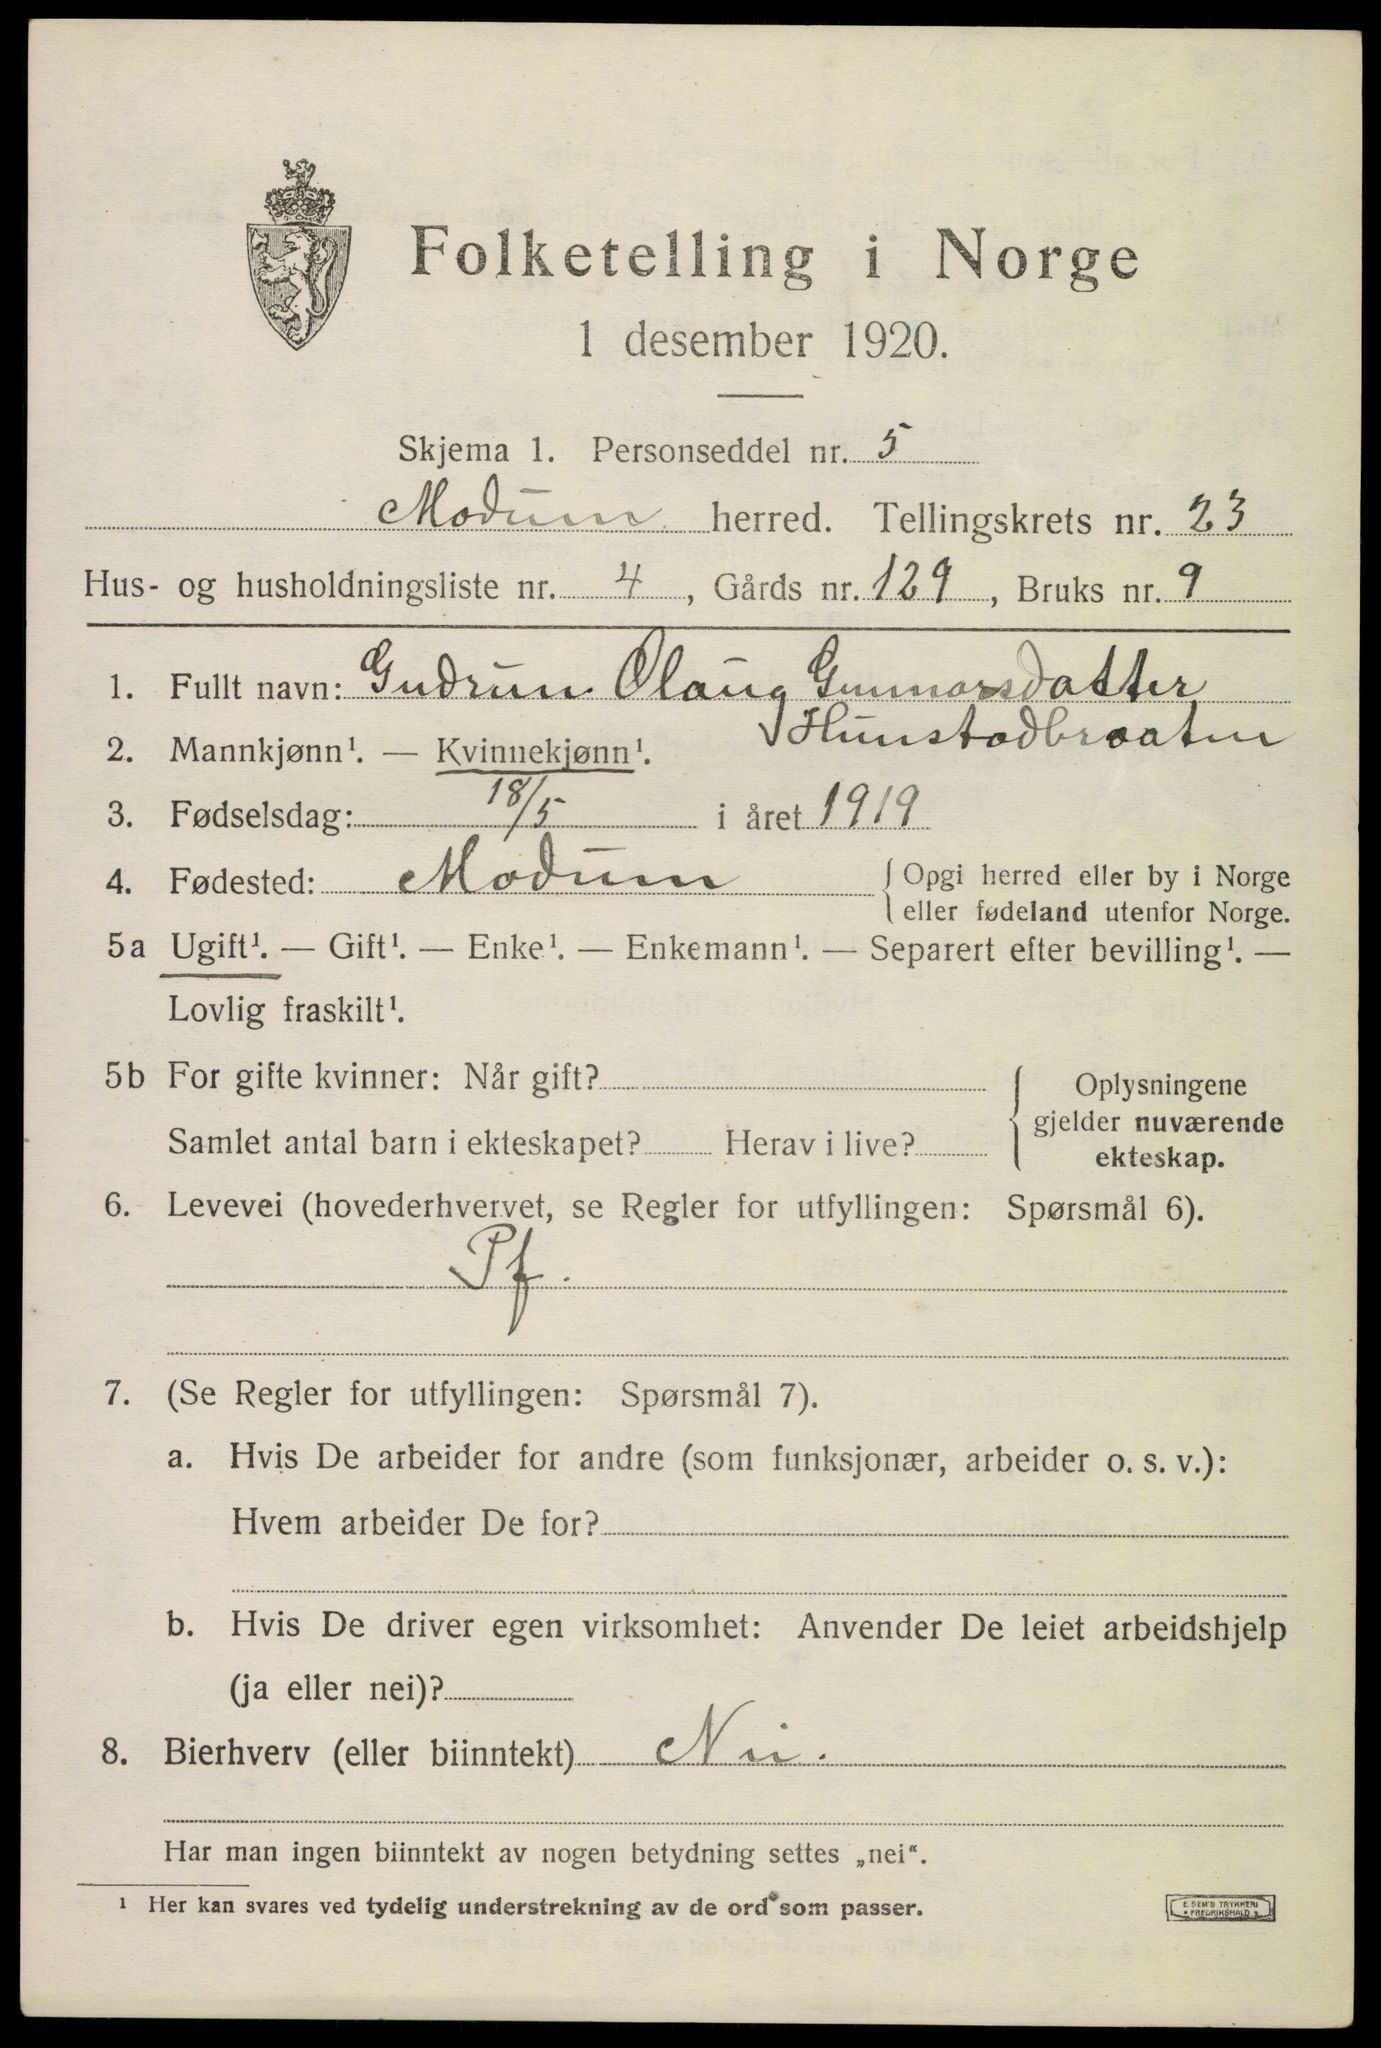 Folketelling i Norge
1 desember 1920.
Skjema 1. Personseddel nr. 5
Modum herred. Tellingskrets nr. 23
Hus- og husholdningsliste nr. 4, Gårds nr. 129, Bruks nr. 9
1. Fullt navn: Gudrun Olaug Gunnarsdatter
Hunstadbraaten
2. Mannkjønn¹. — Kvinnekjønn¹.
3. Fødselsdag: 18/5 i året 1919
4. Fødested: Modum { Opgi herred eller by i Norge
eller fødeland utenfor Norge.
5a Ugift¹. — Gift¹. — Enke¹. — Enkemann¹. — Separert efter bevilling¹. —
Lovlig fraskilt¹.
5b For gifte kvinner: Når gift?
Samlet antal barn i ekteskapet? Herav i live?
Oplysningene
gjelder nuværende
ekteskap.
6. Levevei (hovederhvervet, se Regler for utfyllingen: Spørsmål 6).
Pf.
7. (Se Regler for utfyllingen: Spørsmål 7).
a. Hvis De arbeider for andre (som funksjonær, arbeider o. s. v.):
Hvem arbeider De for?
b. Hvis De driver egen virksomhet: Anvender De leiet arbeidshjelp
(ja eller nei)?
8. Bierhverv (eller biinntekt) Nei.
Har man ingen biinntekt av nogen betydning settes „nei“.
¹ Her kan svares ved tydelig understrekning av de ord som passer.
E. SEM'S TRYKKERI
FREDRIKSHALD